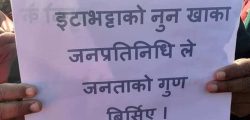 इटाभट्टाको नुन खाका
जनप्रतिनिधि ले
जनताको गुण
बिर्सिए ।